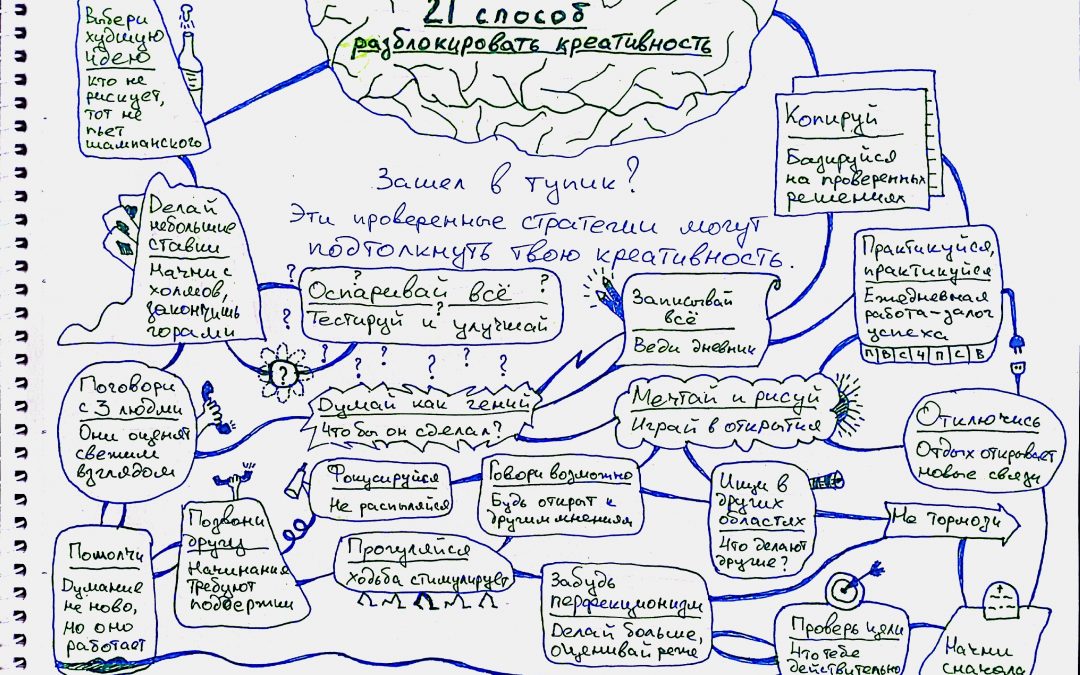 21 способ
разблокировать креативность
Выбери
худшую
идею
кто не
рискует,
тот не
пьет
шампанского
Копируй
Базируйся
на проверенных
решениях
Зашел в тупик?
Эти проверенные стратегии могут
подтолкнуть твою креативность.
Делай
небольшие
ставки
Начни с
холмов,
закончишь
горами
? ? ?
Оспаривай всё
?
Тестируй и улучшай
?
? ? ? ? ?
?
Записывай
всё
Веди дневник
Практикуйся,
практикуйся
Ежедневная
работа-залог
успеха
П В С Ч П С В
Поговори
с 3 людми
Они оценят
свежим
взглядом
Думай как гений
Что бы он сделал?
Мечтай и рисуй
Играй в открытия
Отключись
Отдых открывает
новые связи
Фокусируйся
Не распыляйся
Говори возможно
Будь открыт к
другим мнениям
Ищи в
других
областях
Что делают
другие?
Не тормози
Помолчи
Думание
не ново,
но оно
работает
Подзвони
другу
Начинания
требуют
поддержки
Прогуляйся
Ходьба стимулирует
Забудь
перфекционизм
Делай больше,
оценивай реже
Проверь цели
Что тебе
действительно
Начни
сначала